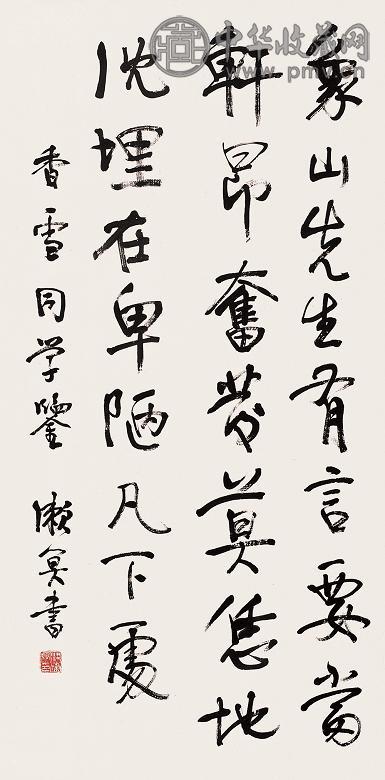 中华收藏网
象山先生有言要當
軒昂奮發莫恁地
沈埋在卑陋凡下處
香雪同学鑒 漱冥書